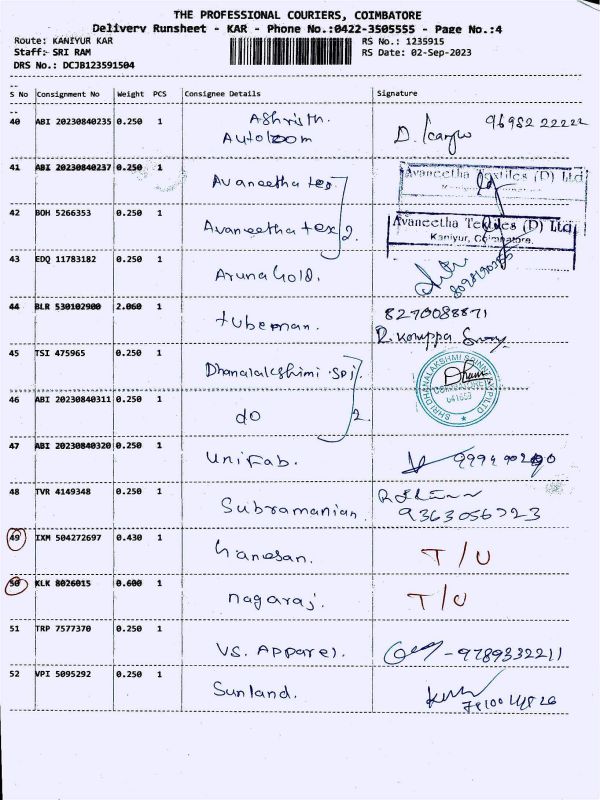 THE PROFESSIONAL COURIERS, COIMBATORE
Delivery Runsheet - KAR - Phone No.:0422-3505555 - Page No.:4
Route: KANIYUR KAR RS No.: 1235915
Staff:- SRI RAM RS Date: 02-Sep-2023
DRS No.: DCJB123591504
S No Consignment No Weight PCS Consignee Details Signature
40 ABI 20230840235 0.250 1 Ashristh. 96952 22222
Autoloom D.
41 ABI 20230840237 0.250 1 Avaneetha tex Avaneetha Textiles (D) Ltd
42 BOH 5266353 0.250 1 Avaneetha tex 2. Avaneetha Textiles (D) Ltd
Kaniyur, Coimbatore.
43 EDQ 11783182 0.250 1 Aruna Gold.
44 BLR 530102900 2.060 1 tubeman. 8270088871
R. Karuppa Samy
45 TSI 475965 0.250 1 Dhanalalakshimi spi
46 ABI 20230840311 0.250 1 do 2. SHRI DHANALAKSHMI SPINNTEX (P) LTD
641659
47 ABI 20230840320 0.250 1 Unifab.
48 TVR 4149348 0.250 1 Subramanian. 9363056723
49 IXM 504272697 0.430 1 Ganesan. T/U
50 KLK 8026015 0.600 1 nagaraj. T/U
51 TRP 7577370 0.250 1 VS. Apparel. - 9789332211
52 VPI 5095292 0.250 1 Sunland.